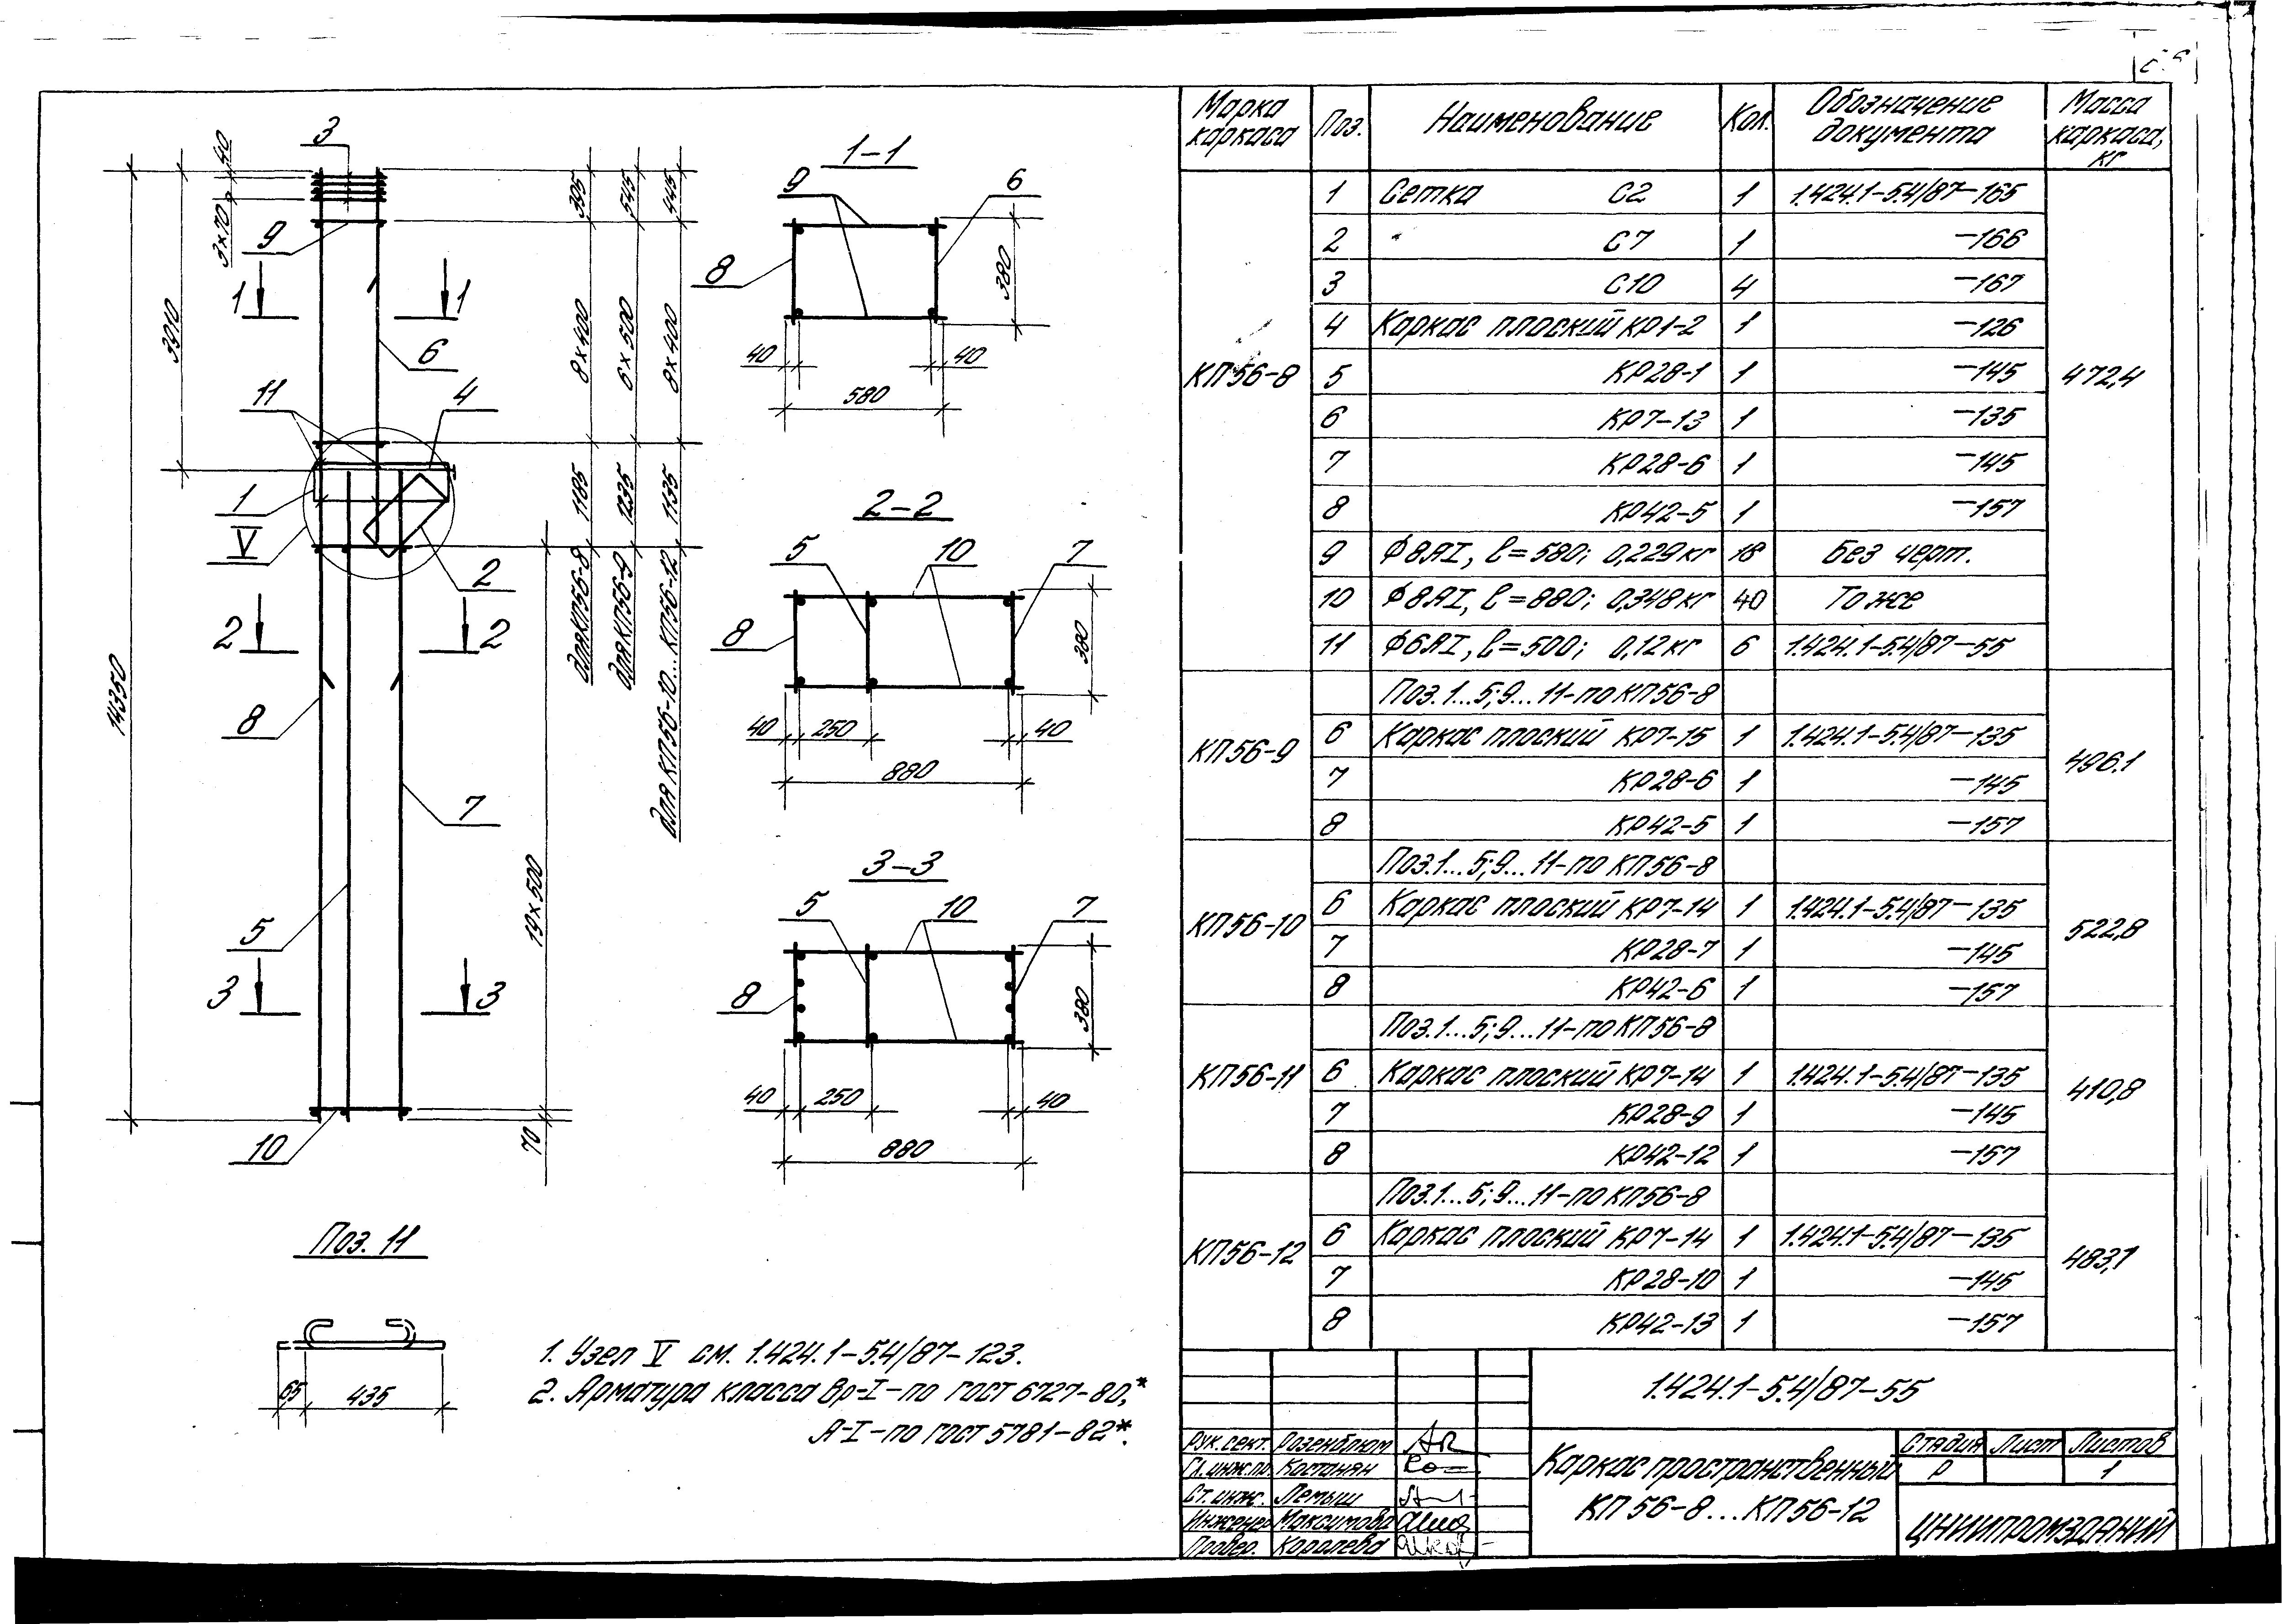 3
40
3×70
9
1
1
3910
6
11
4
1
V
2
2
2
14350
8
7
5
3
3
19×500
70
10
395
545
445
8×400
6×500
8×400
1185
1235
1135
для КП56-8
для КП56-9
для КП56-10...КП56-12
1-1
9
6
8
380
40
40
580
2-2
5
10
7
8
380
40
250
40
880
3-3
5
10
7
8
380
40
250
40
880
Поз. 11
65
435
1. Узел V см. 1.424.1-5.4/87-123.
2. Арматура класса Вр-I-по ГОСТ 6727-80,*
А-I-по ГОСТ 5781-82*.
Марка каркаса Поз. Наименование Кол. Обозначение документа Масса каркаса, кг
КП56-8 472,4
1 Сетка С2 1 1.424.1-5.4/87-165
2 С7 1 -166
3 С10 4 -167
4 Каркас плоский КР1-2 1 -126
5 КР28-1 1 -145
6 КР7-13 1 -135
7 КР28-6 1 -145
8 КР42-5 1 -157
9 Ф8АI, ℓ=580; 0,229кг 18 Без черт.
10 Ф8АI, ℓ=880; 0,348кг 40 То же
11 Ф6АI, ℓ=500; 0,12кг 6 1.424.1-5.4/87-55
КП56-9 496.1
Поз.1...5;9...11-по КП56-8
6 Каркас плоский КР7-15 1 1.424.1-5.4/87-135
7 КР28-6 1 -145
8 КР42-5 1 -157
КП56-10 522,8
Поз.1...5;9...11-по КП56-8
6 Каркас плоский КР7-14 1 1.424.1-5.4/87-135
7 КР28-7 1 -145
8 КР42-6 1 -157
КП56-11 410,8
Поз.1...5;9...11-по КП56-8
6 Каркас плоский КР7-14 1 1.424.1-5.4/87-135
7 КР28-9 1 -145
8 КР42-12 1 -157
КП56-12 483,1
Поз.1...5;9...11-по КП56-8
6 Каркас плоский КР7-14 1 1.424.1-5.4/87-135
7 КР28-10 1 -145
8 КР42-13 1 -157
1.424.1-5.4/87-55
Рук.сект. Розенблюм
Гл.инж.пр. Костанян
Ст.инж. Лемыш
Инженер Максимова
Провер. Королева
Каркас пространственный
КП56-8...КП56-12
Стадия Лист Листов
Р 1
ЦНИИПРОМЗДАНИЙ